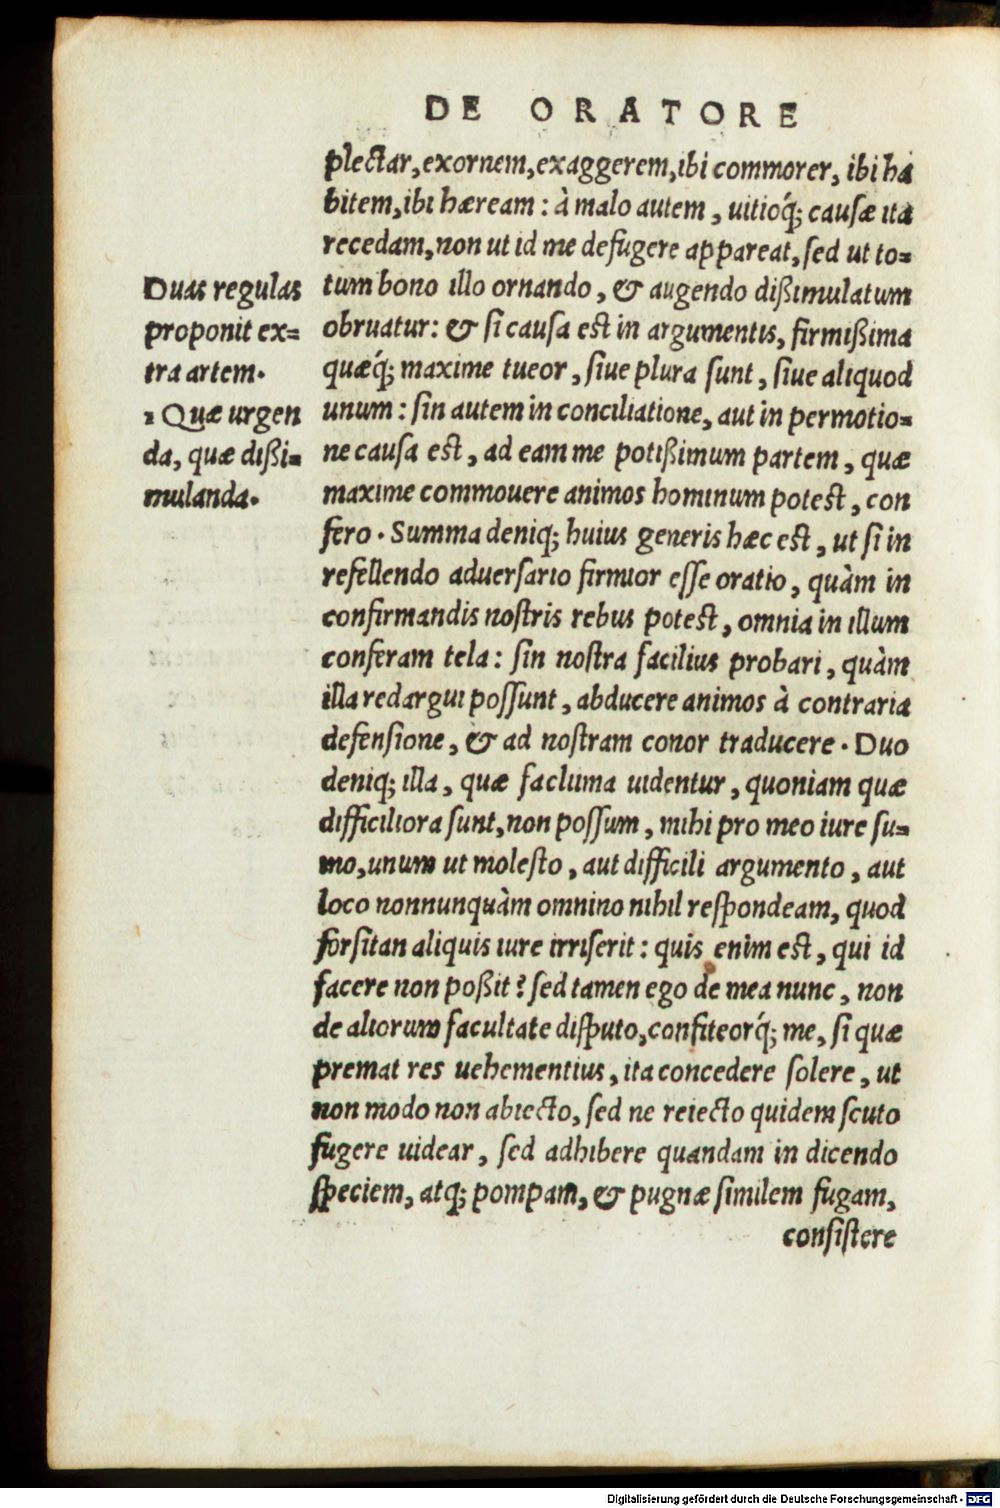 DE ORATORE
plectar, exornem, exaggerem, ibi commorer, ibi ha
bitem, ibi hæream : à malo autem, uitioq́; causæ ita
recedam, non ut id me defugere appareat, sed ut to=
tum bono illo ornando, & augendo dißimulatum
obruatur: & si causa est in argumentis, firmißima
quæq́; maxime tueor, siue plura sunt, siue aliquod
unum : sin autem in conciliatione, aut in permotio=
ne causa est, ad eam me potißimum partem, quæ
maxime commouere animos hominum potest, con
fero. Summa deniq; huius generis hæc est, ut si in
refellendo aduersario firmior esse oratio, quàm in
confirmandis nostris rebus potest, omnia in illum
conferam tela : sin nostra facilius probari, quàm
illa redargui possunt, abducere animos à contraria
defensione, & ad nostram conor traducere. Duo
deniq; illa, quæ facluma uidentur, quoniam quæ
difficiliora sunt, non possum, mihi pro meo iure su=
mo, unum ut molesto, aut difficili argumento, aut
loco nonnunquàm omnino nihil respondeam, quod
forsitan aliquis iure irriserit : quis enim est, qui id
facere non poßit? sed tamen ego de mea nunc, non
de aliorum facultate disputo, confiteorq́; me, si quæ
premat res uehementius, ita concedere solere, ut
non modo non abiecto, sed ne reiecto quidem scuto
fugere uidear, sed adhibere quandam in dicendo
speciem, atq; pompam, & pugnæ similem fugam,
consistere
Duas regulas
proponit ex=
tra artem.
1 Quæ urgen
da, quæ dißi=
mulanda.
Digitalisierung gefördert durch die Deutsche Forschungsgemeinschaft - DFG